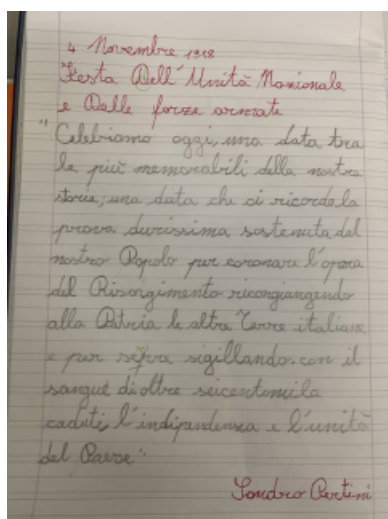 4 Novembre 1918
Festa Dell'Unità Nazionale
e Delle forze armate
"Celebriamo oggi, una data tra
le più memorabili della nostra
storia; una data che ci ricorda la
prova durissima sostenuta dal
nostro Popolo per coronare l'opera
del Risorgimento ricongiungendo
alla Patria le altre Terre italiane
e per sigillando con il
sangue di oltre seicentomila
caduti, l'indipendenza e l'unità
del Paese".
Sandro Pertini